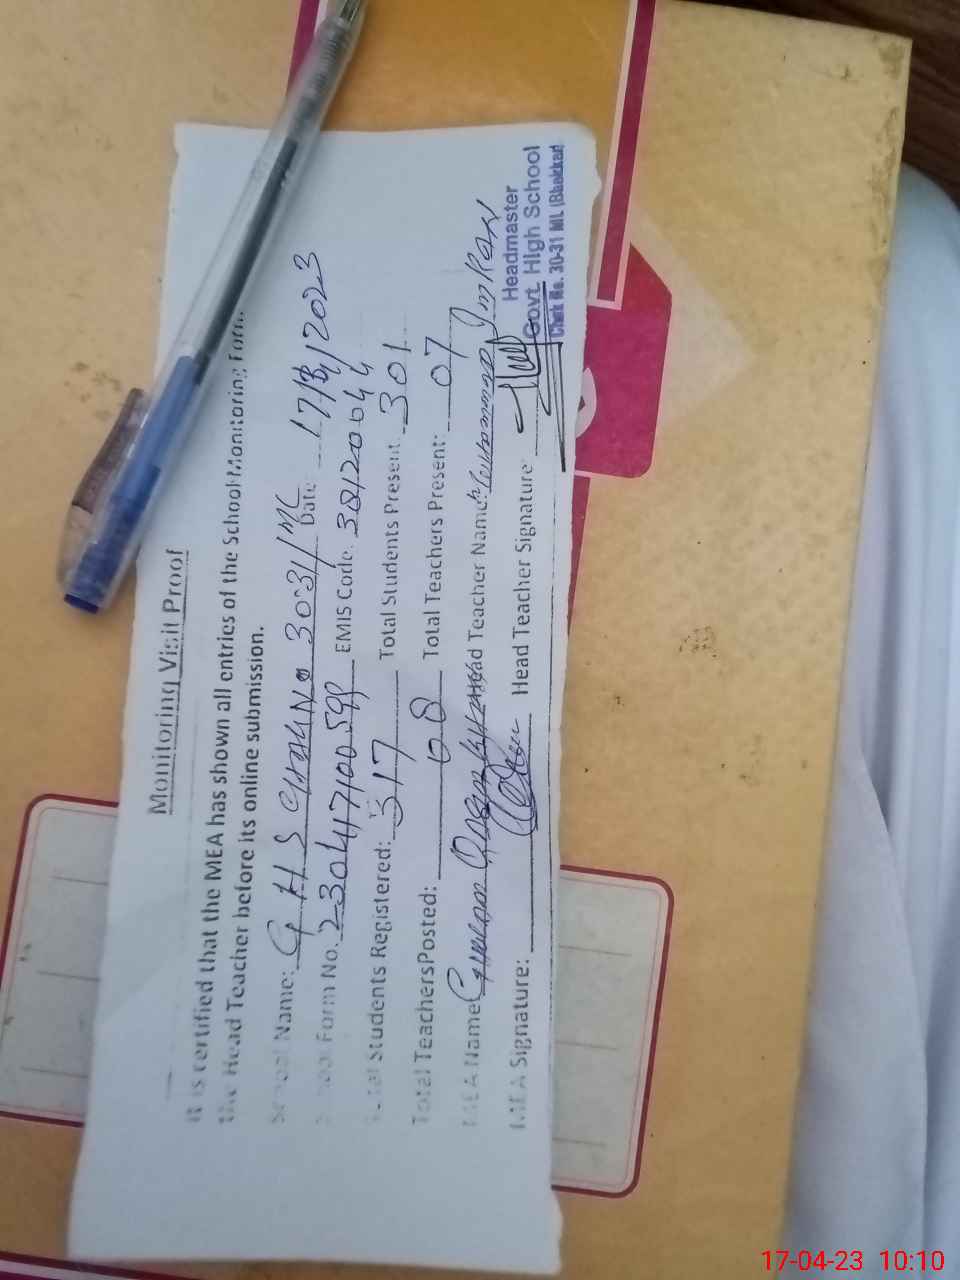 Monitoring Visit Proof
It is certified that the MEA has shown all entries of the School Monitoring Form
the Head Teacher before its online submission.
School Name: G H S Chak No 30-31/ML Date 17/ /2023
School Form No. 230417100598 EMIS Code. 38120044
Total Students Registered: 317 Total Students Present 301
Total Teachers Posted: 08 Total Teachers Present: 07
MEA Name Ghulam Head Teacher Name: Muhammad Imran
MEA Signature: Head Teacher Signature
Headmaster
Govt. High School
Chak No. 30-31 ML (Bhakkar)
17-04-23 10:10